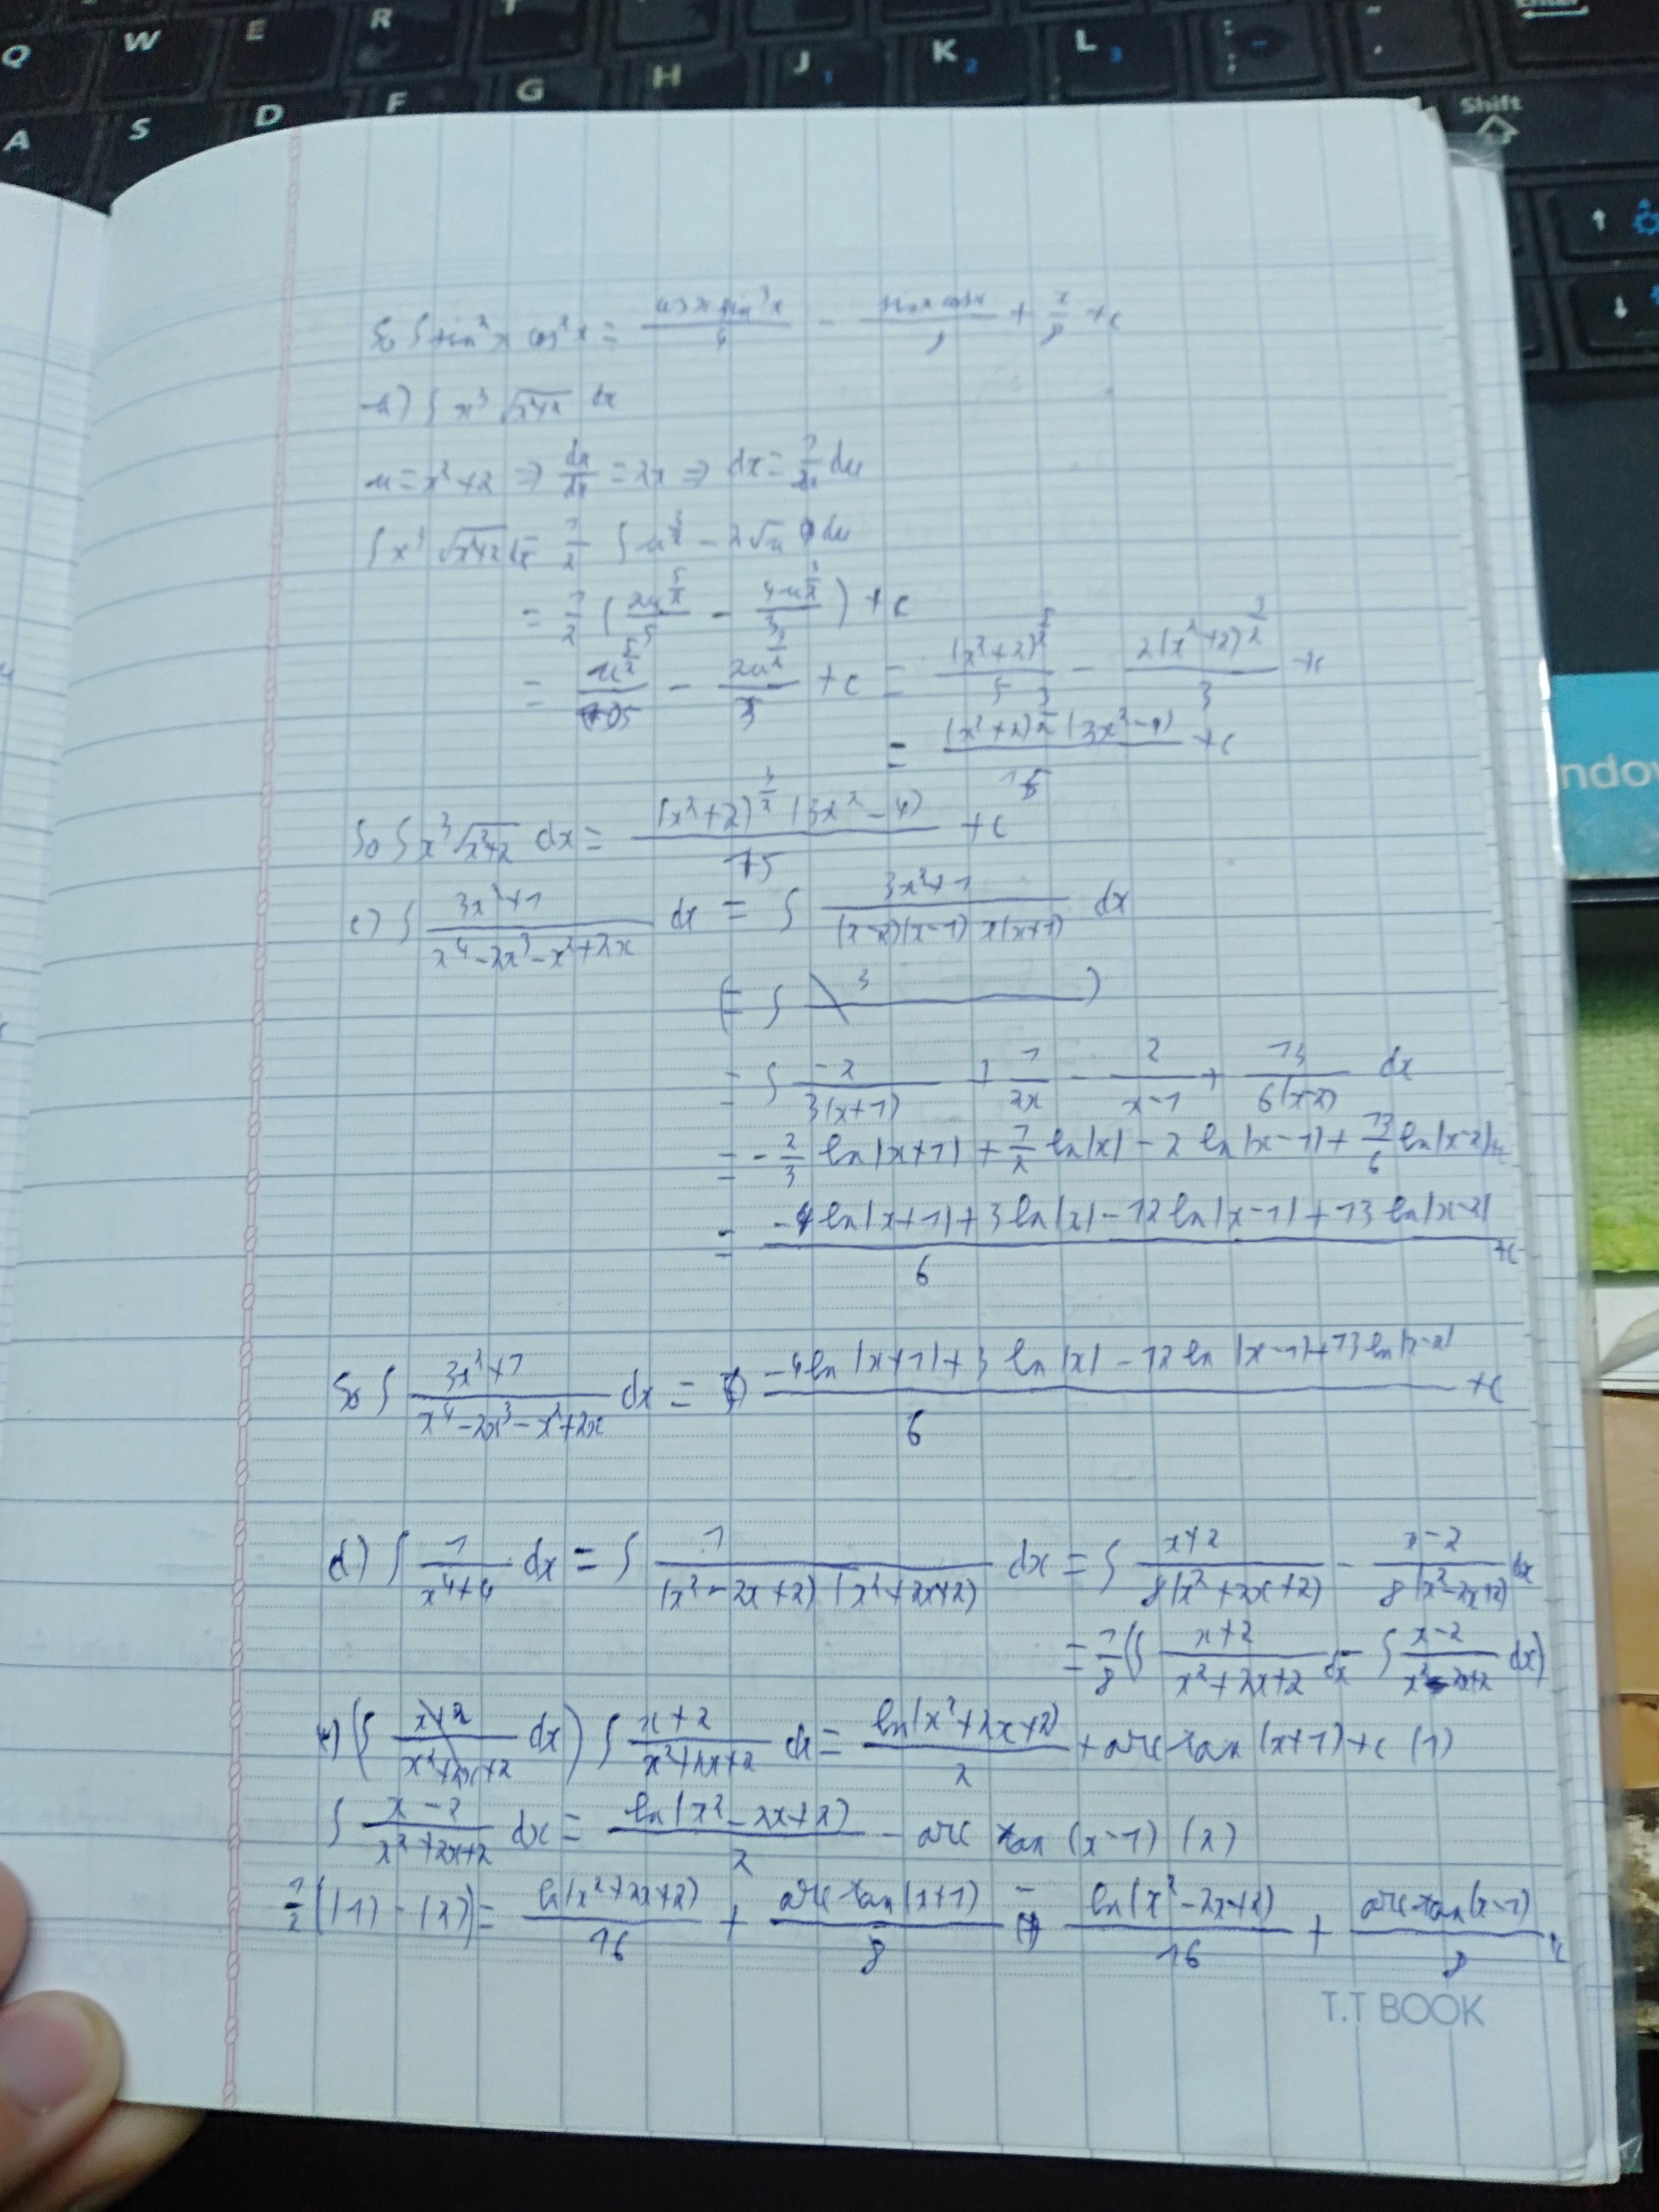 Q W E R T Enter
A S D F G H J 1 K 2 L 3 : ; " '
Shift
↑
↓
So ∫ sin²x cos²x = cosx sin³x/4 - sinx cosx/8 + x/8 + c
∫ x³ √(x²+2) dx
u = x²+2 ⇒ du/dx = 2x ⇒ dx = 1/2x du
∫ x³ √(x²+2) dx = 1/2 ∫ u^(3/2) - 2√u du
= 1/2 (2u^(5/2)/5 - 4u^(3/2)/3) + c
= u^(5/2)/5 - 2u^(3/2)/3 + c = (x²+2)^(5/2)/5 - 2(x²+2)^(3/2)/3 + c
= (x²+2)^(3/2) (3x²-4)/15 + c
So ∫ x³ √(x²+2) dx = (x²+2)^(3/2) (3x²-4)/15 + c
c) ∫ (3x²+1)/(x⁴-2x³-x²+2x) dx = ∫ (3x²+1)/((x-2)(x-1)x(x+1)) dx
(= ∫ 3 )
= ∫ -2/(3(x+1)) + 1/(2x) - 2/(x-1) + 13/(6(x-2)) dx
= -2/3 ln|x+1| + 1/2 ln|x| - 2 ln|x-1| + 13/6 ln|x-2| + c
= (-4 ln|x+1| + 3 ln|x| - 12 ln|x-1| + 13 ln|x-2|)/6 + c
So ∫ (3x²+1)/(x⁴-2x³-x²+2x) dx = (-4 ln|x+1| + 3 ln|x| - 12 ln|x-1| + 13 ln|x-2|)/6 + c
d) ∫ 1/(x⁴+4) dx = ∫ 1/((x²-2x+2)(x²+2x+2)) dx = ∫ (x+2)/(8(x²+2x+2)) - (x-2)/(8(x²-2x+2)) dx
= 1/8 (∫ (x+2)/(x²+2x+2) dx - ∫ (x-2)/(x²-2x+2) dx)
(∫ (x+2)/(x²+2x+2) dx) ∫ (x+2)/(x²+2x+2) dx = ln(x²+2x+2)/2 + arc tan (x+1) + c (1)
∫ (x-2)/(x²+2x+2) dx = ln(x²-2x+2)/2 - arc tan (x-1) (2)
1/2 ((1) - (2)) = ln(x²+2x+2)/16 + arc tan(x+1)/8 - ln(x²-2x+2)/16 + arc tan(x-1)/8 + c
T.T BOOK